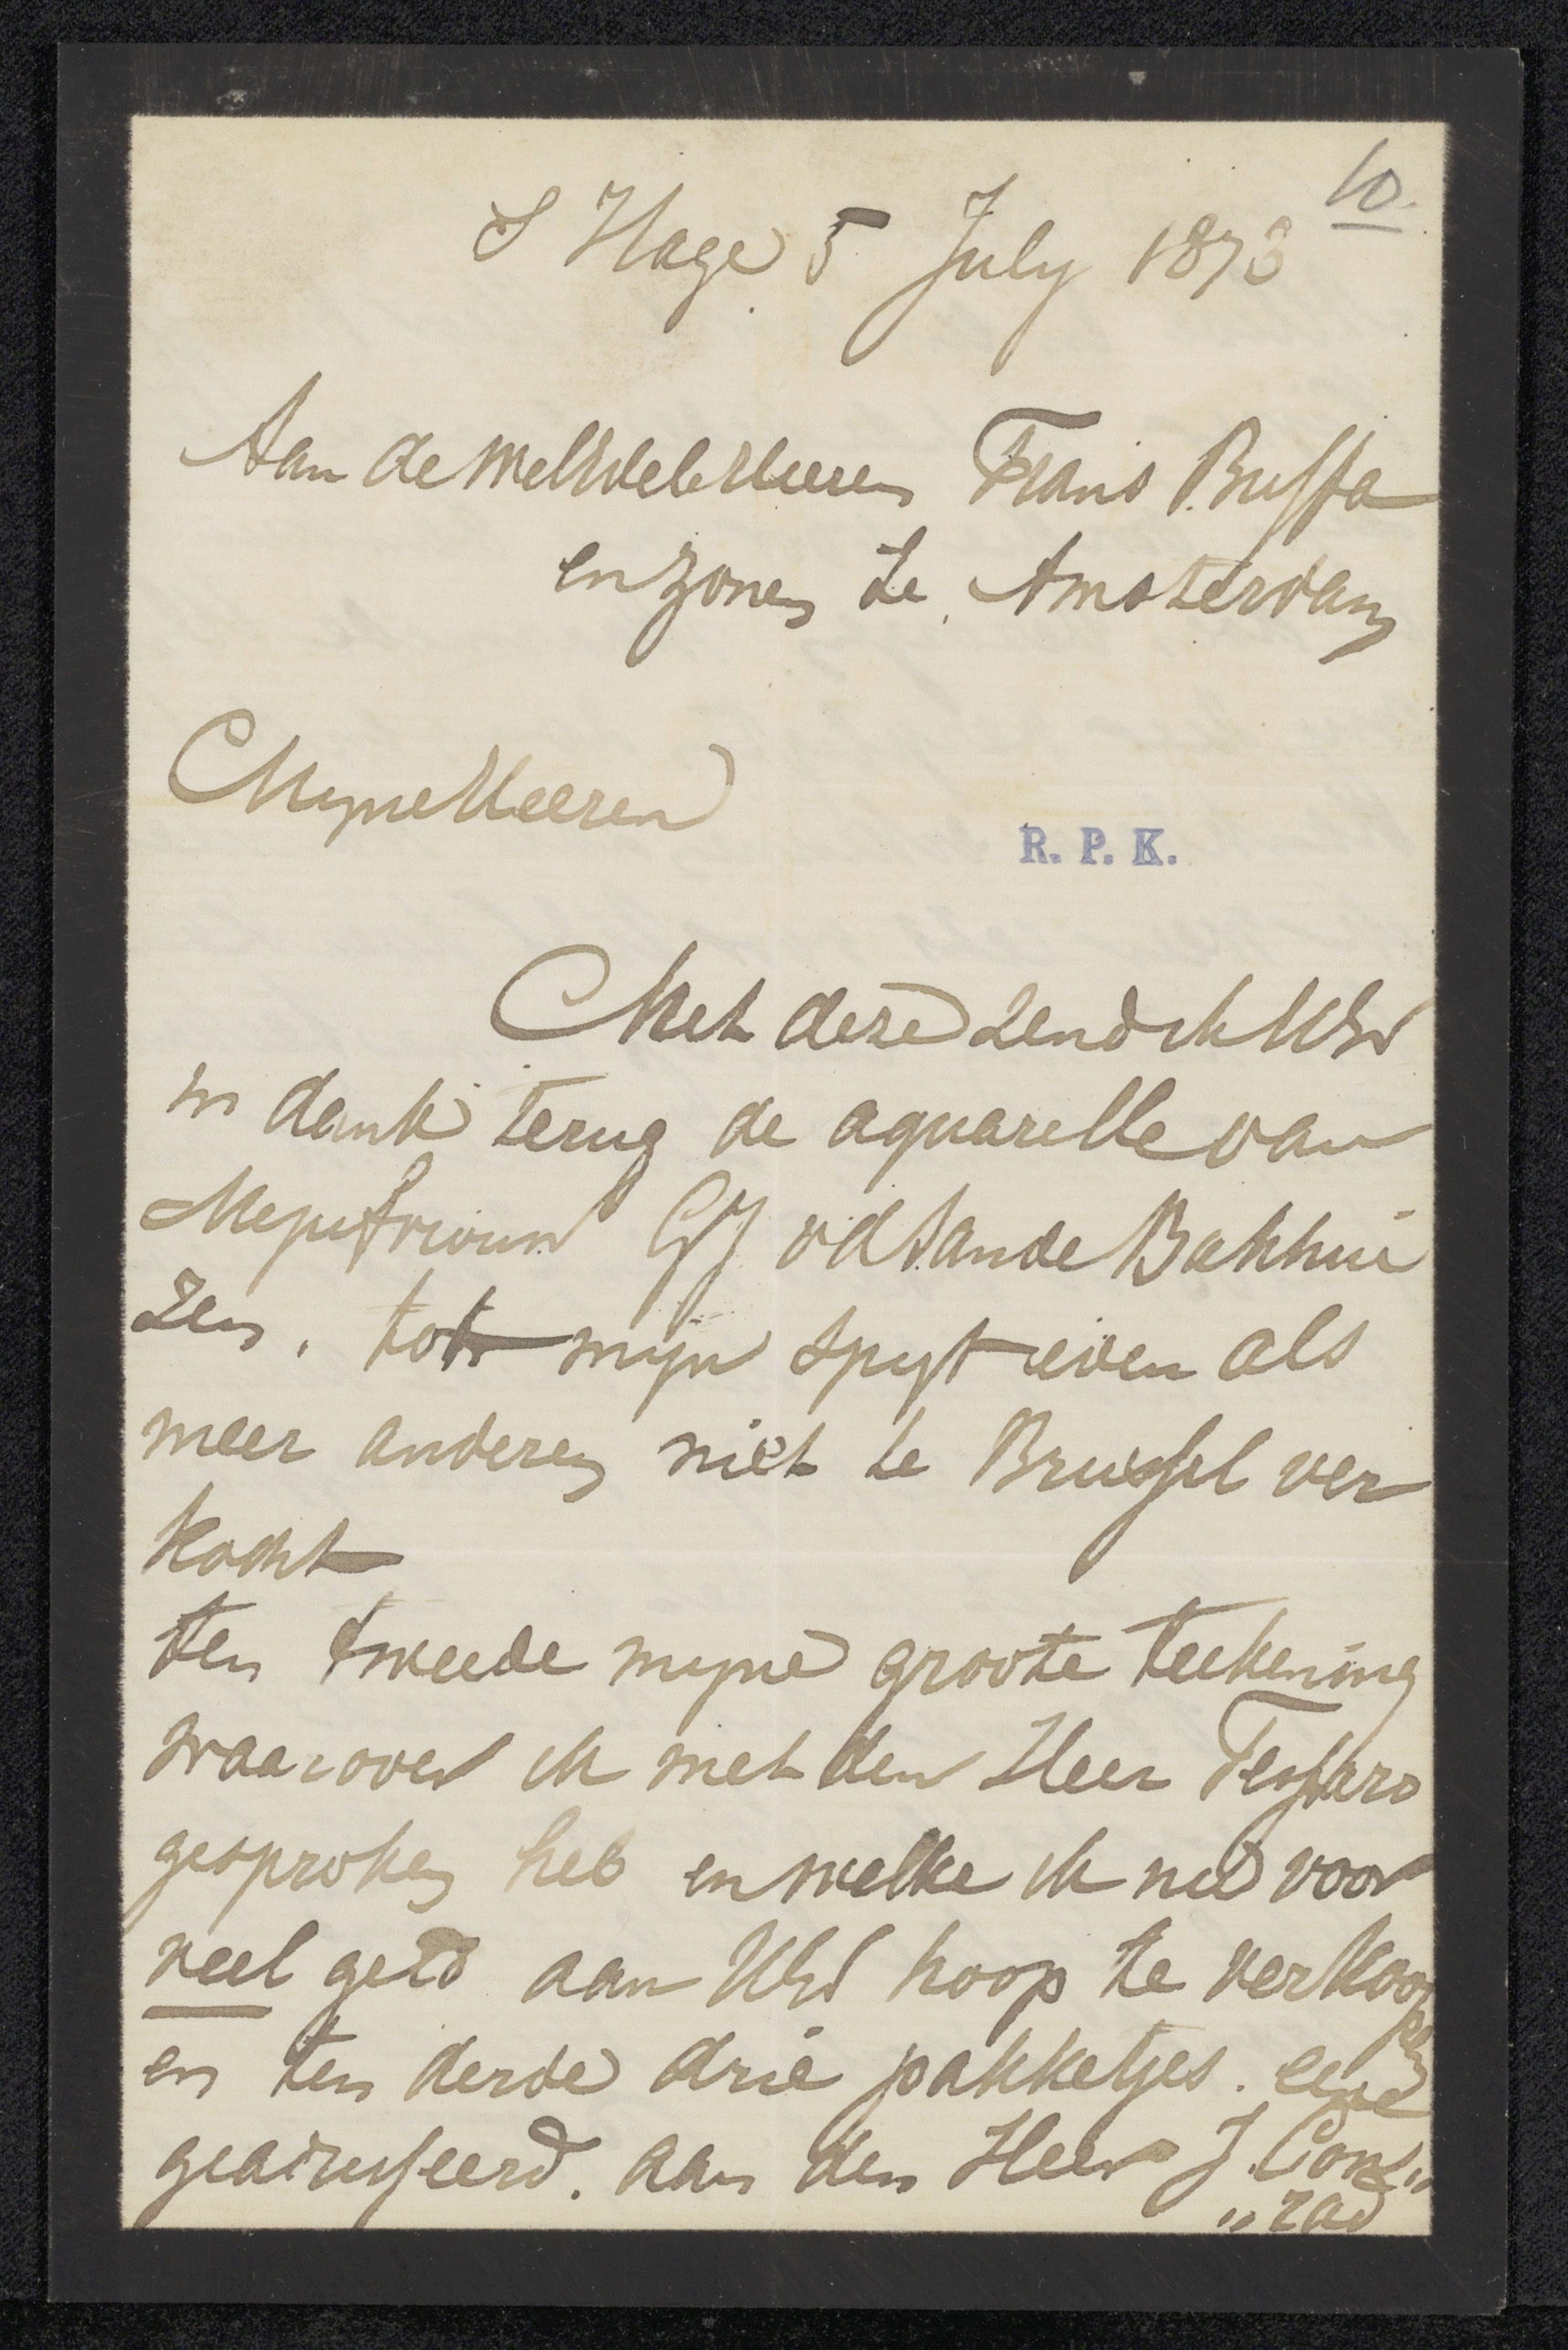 10.
S Hage 5 July 1873
Aan de WelEdele Heeren Frans Buffa
en zonen te Amsterdam
Myne Heeren
R. P. K.
Met deze zend ik UEd
in dank terug de aquarelle van
Mejufvrouw GJ vd Sande Bakhui
zen, tot mijn spyt even als
meer anderen niet te Brussel ver
kocht
ten tweede myne groote teekening
waarover ik met den Heer Tessaro
gesproken heb en welke ik nu voor
veel geld aan UEd hoop te verkoopen
en ten derde drie pakketjes. een
geadresseerd. aan den Heer J. Con„
„rad